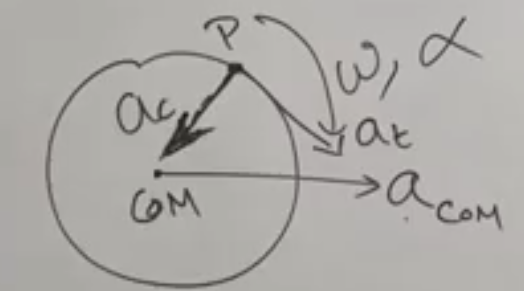 P
ω, α
ac
at
COM
aCOM